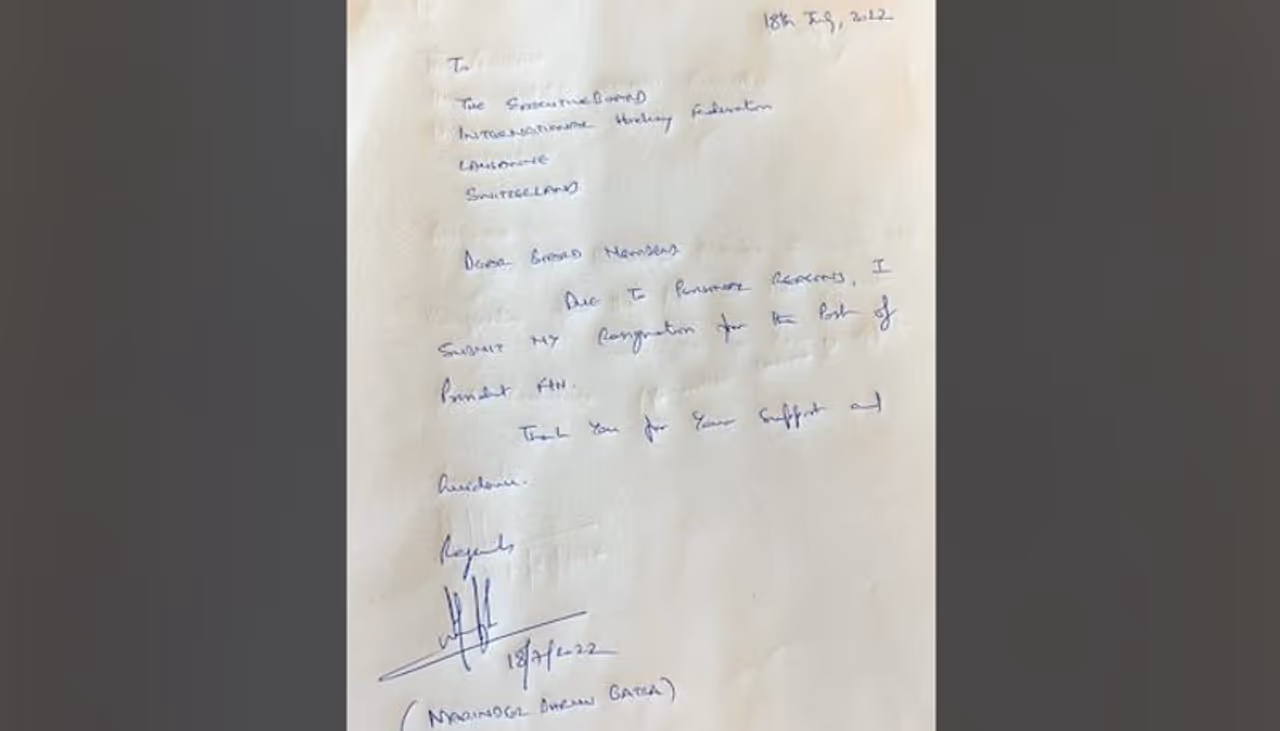 18th July, 2022
To
The Executive Board
International Hockey Federation
Lausanne
Switzerland
Dear Board Members
Due To Personal Reasons, I
Submit My Resignation for the Post of
President FIH.
Thank You for Your Support and
Guidance.
Regards
18/7/2022
(NARINDER DHRUV BATRA)